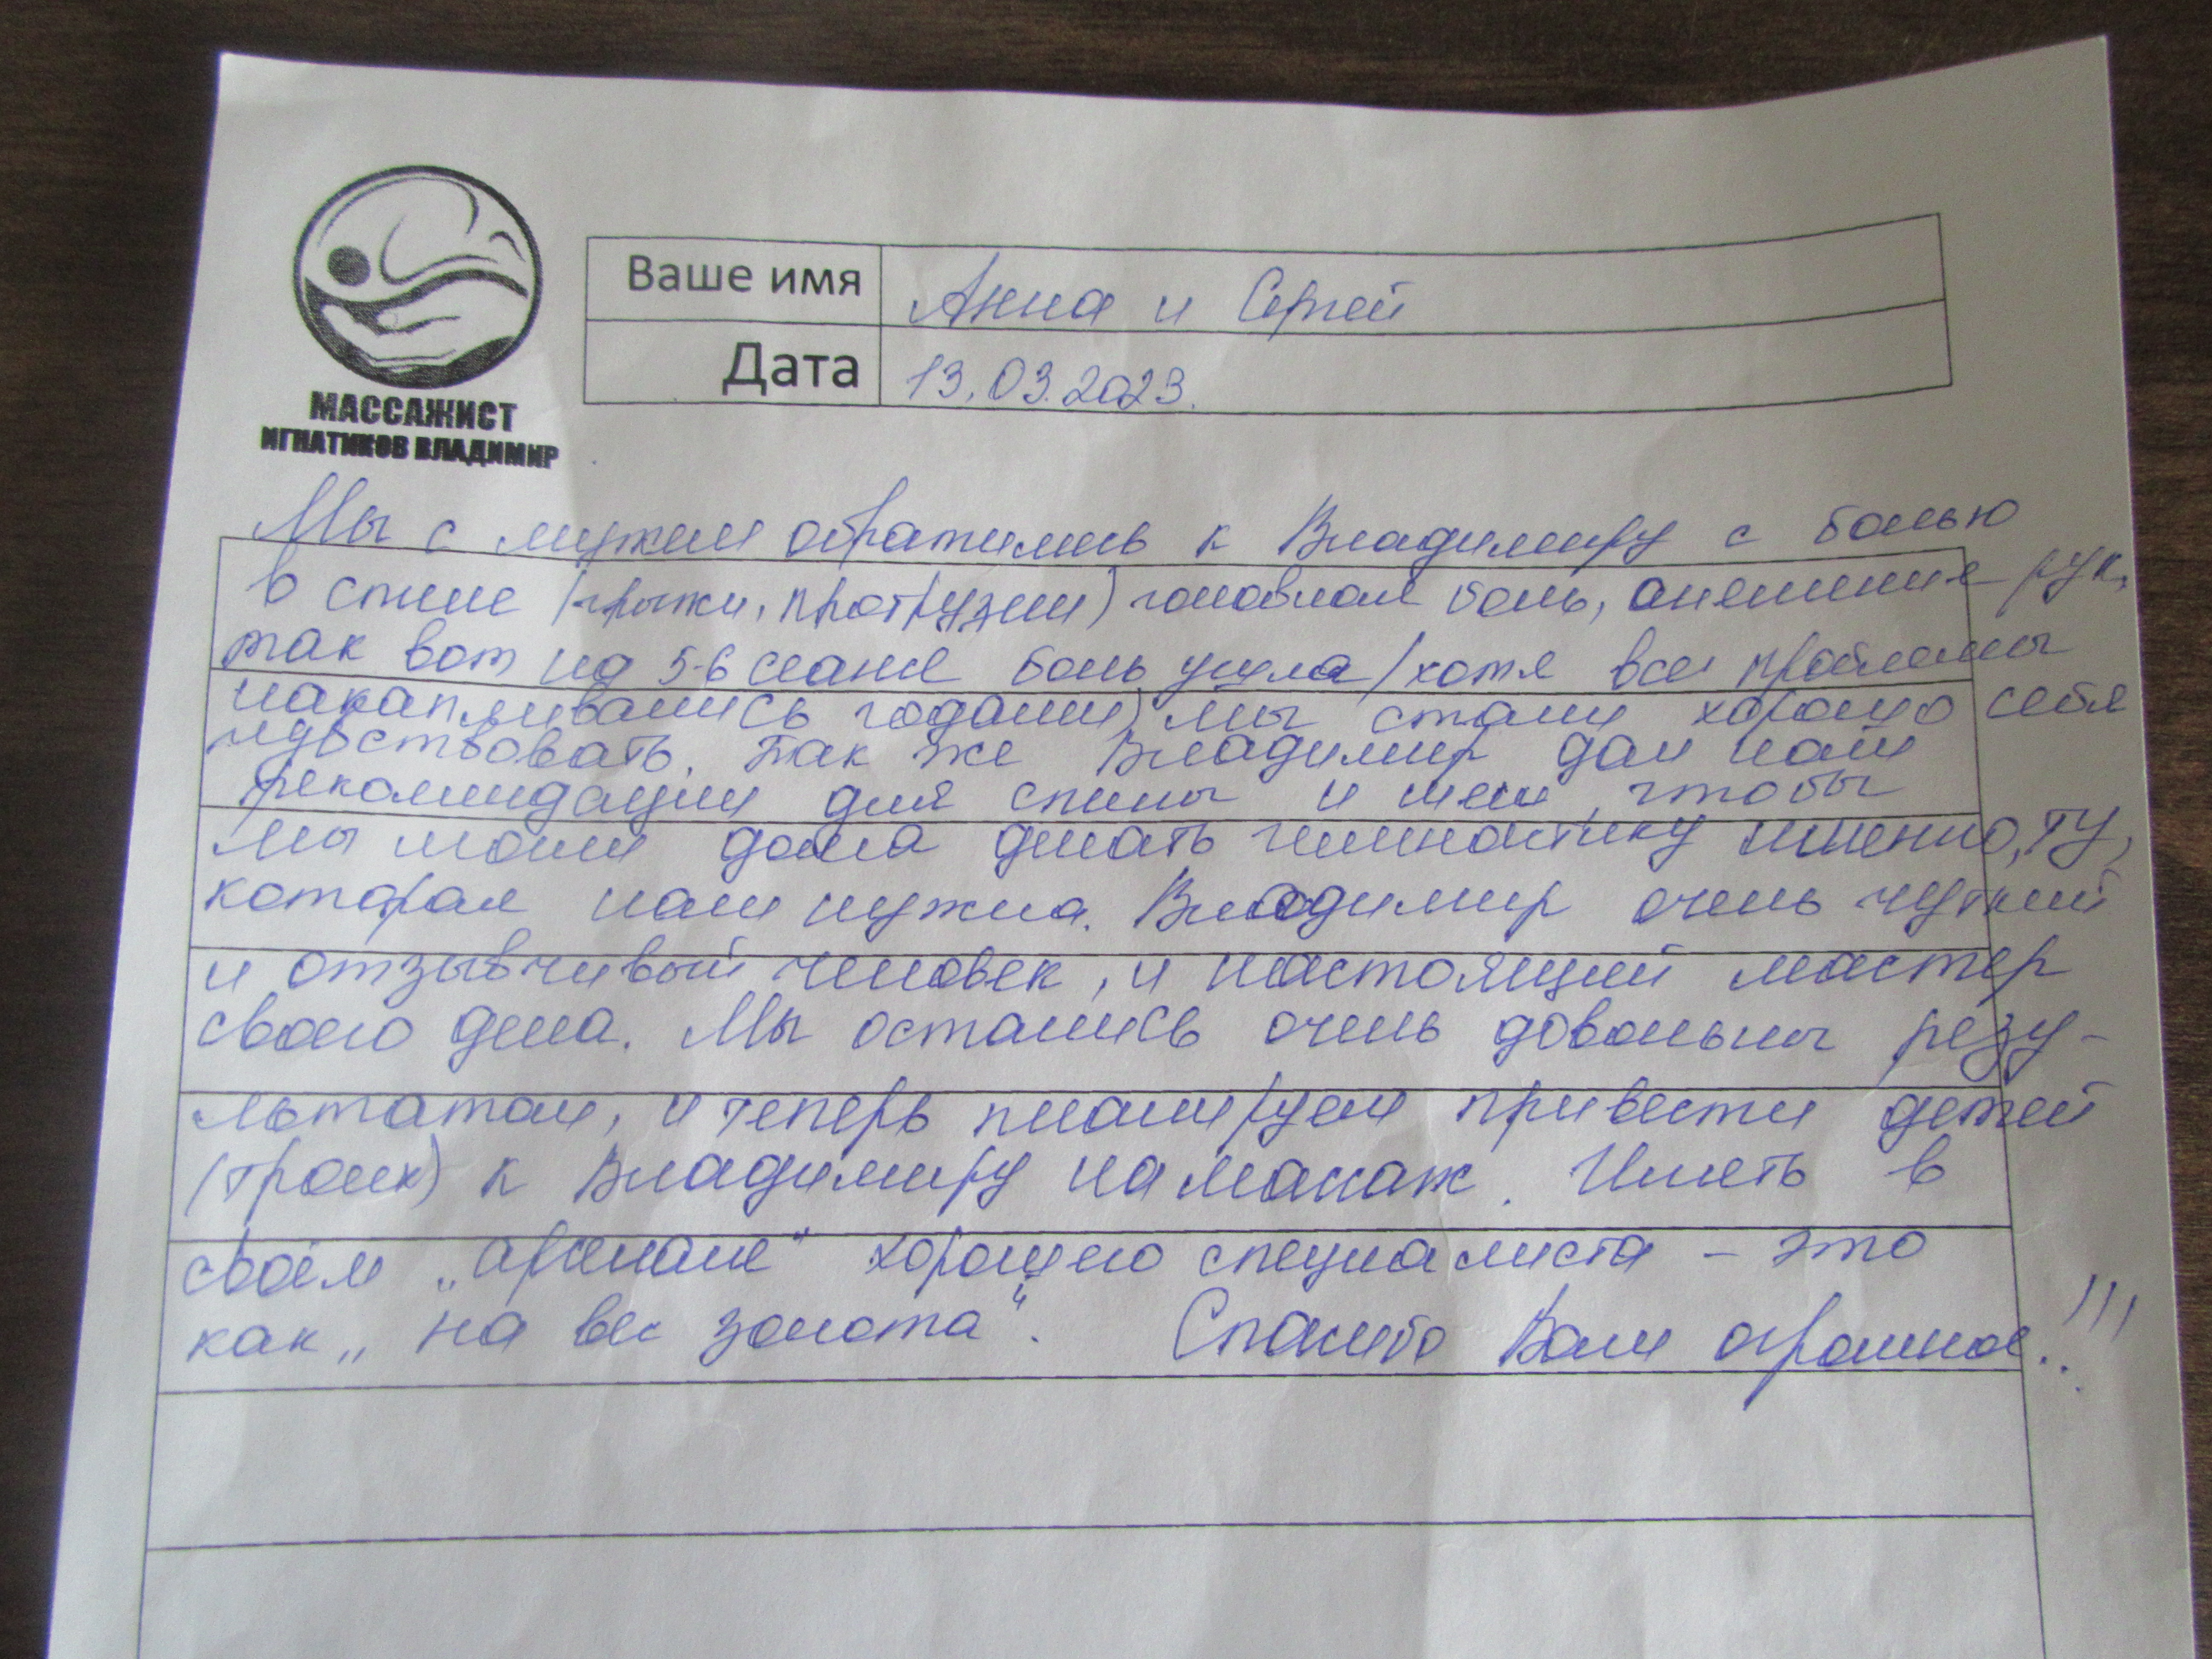 МАССАЖИСТ
ИГНАТИКОВ ВЛАДИМИР
Ваше имя Анна и Сергей
Дата 13.03.2023.
Мы с мужем обратились к Владимиру с болью
в спине (грыжи, протрузии) головная боль, онемение рук,
так вот на 5-6 сеансе боль ушла (хотя все проблемы
накапливались годами) мы стали хорошо себя
чувствовать. Так же Владимир дал нам
рекомендации для спины и шеи, чтобы
мы могли дома делать гимнастику именно, ту,
которая нам нужна. Владимир очень чуткий
и отзывчивый человек, и настоящий мастер
своего дела. Мы остались очень довольны резу-
льтатом, и теперь планируем привести детей
(троих) к Владимиру на массаж. Иметь в
своём „арсенале" хорошего специалиста - это
как „на вес золота". Спасибо Вам огромное!!!